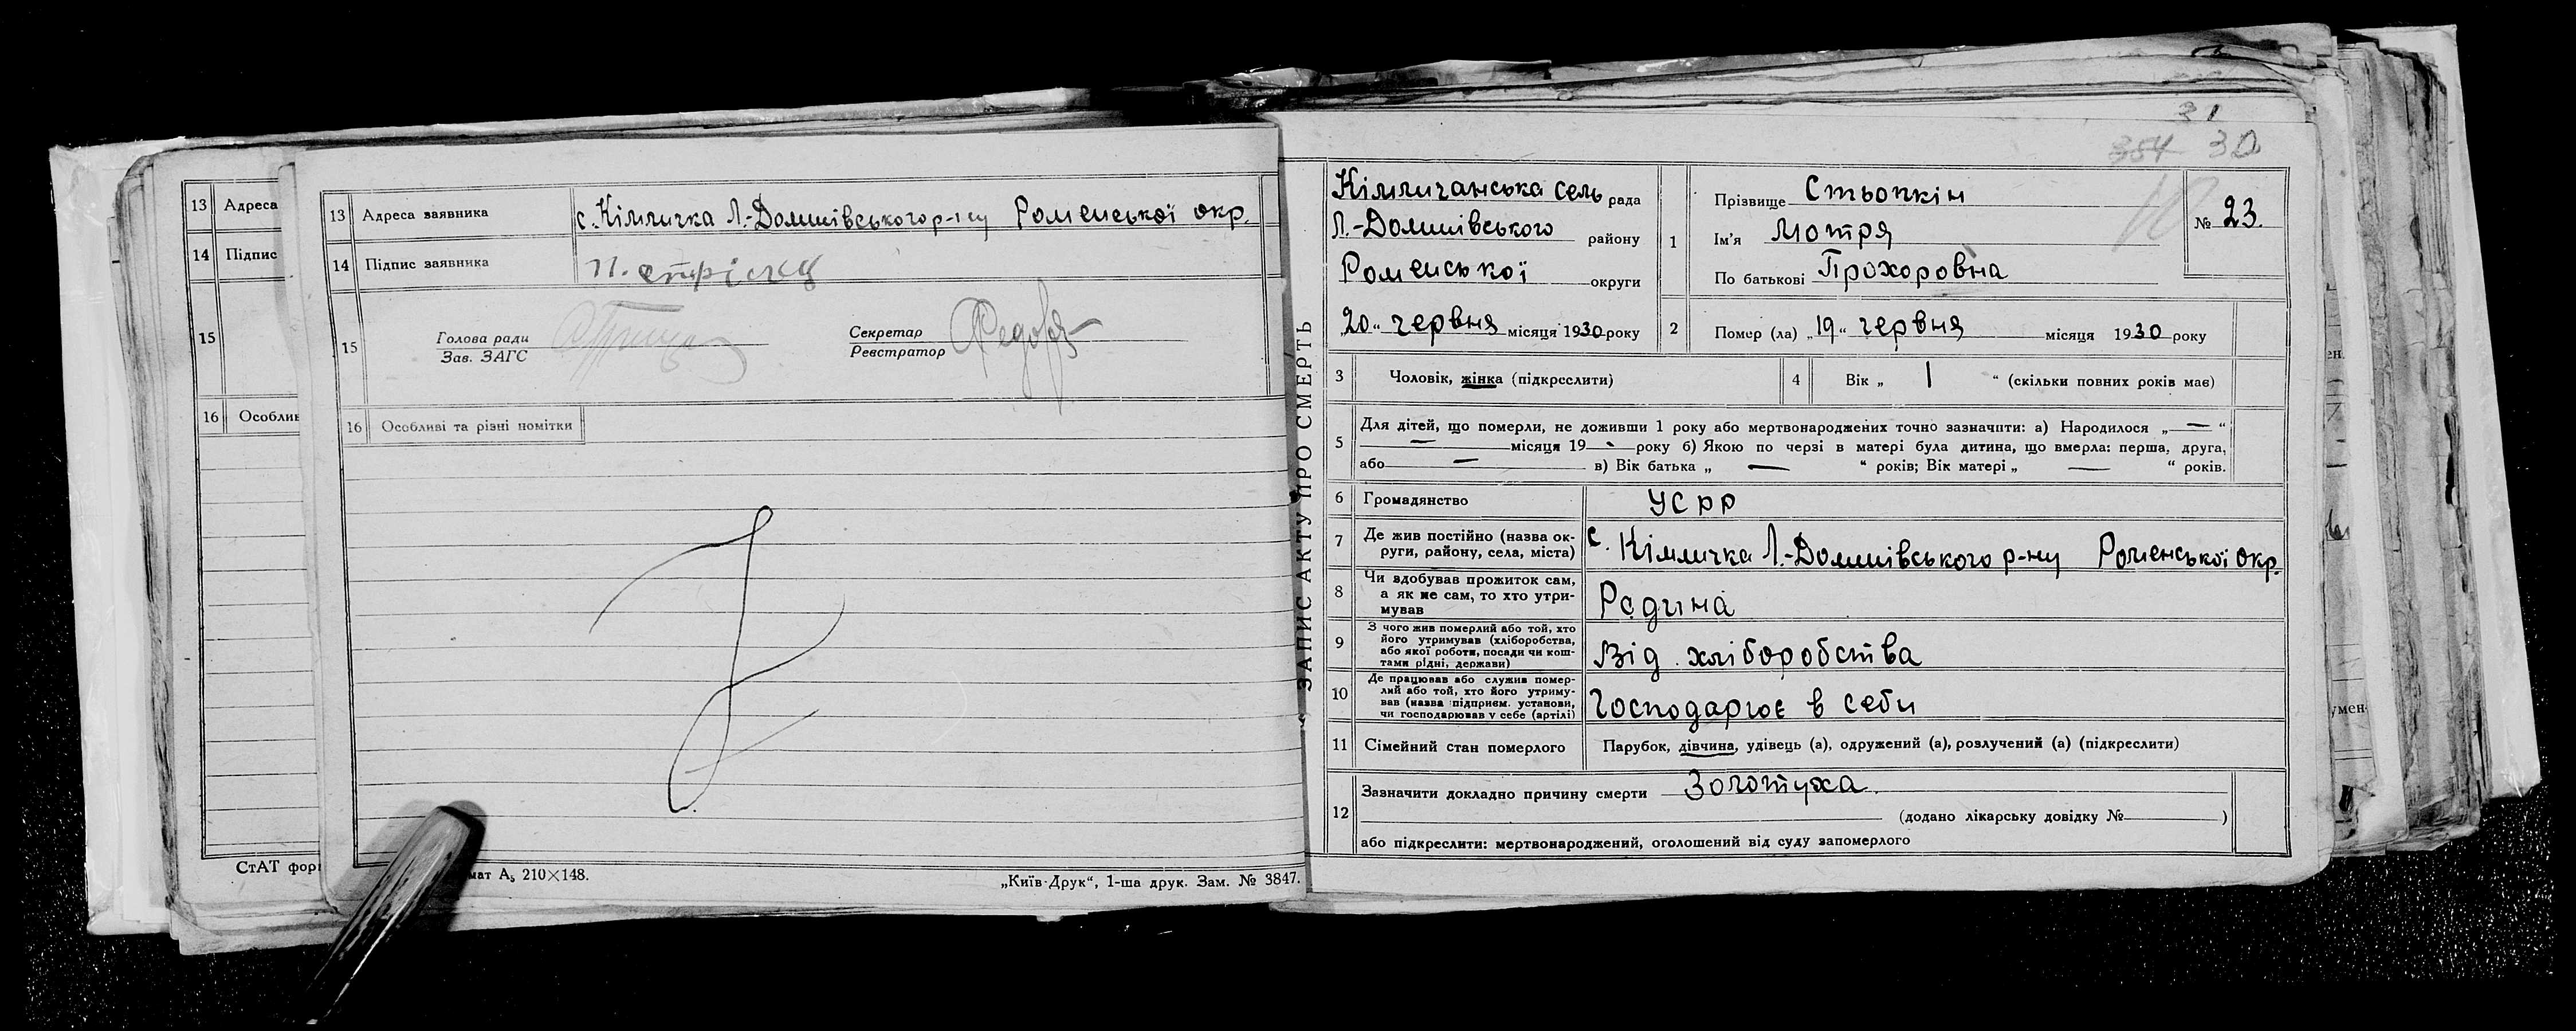 13 Адреса
14 Підпис
15
16 Особлив
СтАТ фор
13 Адреса заявника с. Кімличка Л.-Долинівського р-ну Роменської окр.
14 Підпис заявника
15 Голова ради
Зав. ЗАГС
Секретар
Реєстратор
16 Особливі та різні помітки
мат А₅ 210×148.
„Київ-Друк“, 1-ша друк. Зам. № 3847.
ЗАПИС АКТУ ПРО СМЕРТЬ
31
354 30
Кімличанська сель рада
Л.-Долинівського району
Роменської округи
„20“ червня місяця 1930 року
1 Прізвище Стьопкін
Ім'я Мотря
По батькові Прохоровна
№ 23.
2 Помер (ла) „19“ червня місяця 1930 року
3 Чоловік, жінка (підкреслити)
4 Вік „ 1 “ (скільки повних років має)
5 Для дітей, що померли, не доживши 1 року або мертвонароджених точно зазначити: а) Народилося „ — “
— місяця 19 - року б) Якою по черзі в матері була дитина, що вмерла: перша, друга,
або — в) Вік батька „ — “ років; Вік матері „ — “ років.
6 Громадянство УСРР
7 Де жив постійно (назва ок-
руги, району, села, міста) с. Кімличка Л.-Долинівського р-ну Роменської окр.
8 Чи здобував прожиток сам,
а як не сам, то хто утри-
мував Родина
9 З чого жив померлий або той, хто
його утримував (хліборобства,
або якої роботи, посади чи кош-
тами рідні, держави) Від хліборобства
10 Де працював або служив помер-
лий або той, хто його утриму-
вав (назва підприєм. установи,
чи господарював у себе (артілі) Господарює в себи
11 Сімейний стан померлого Парубок, дівчина, удівець (а), одружений (а), розлучений (а) (підкреслити)
12 Зазначити докладно причину смерти Золотуха.
(додано лікарську довідку № )
або підкреслити: мертвонароджений, оголошений від суду запомерлого